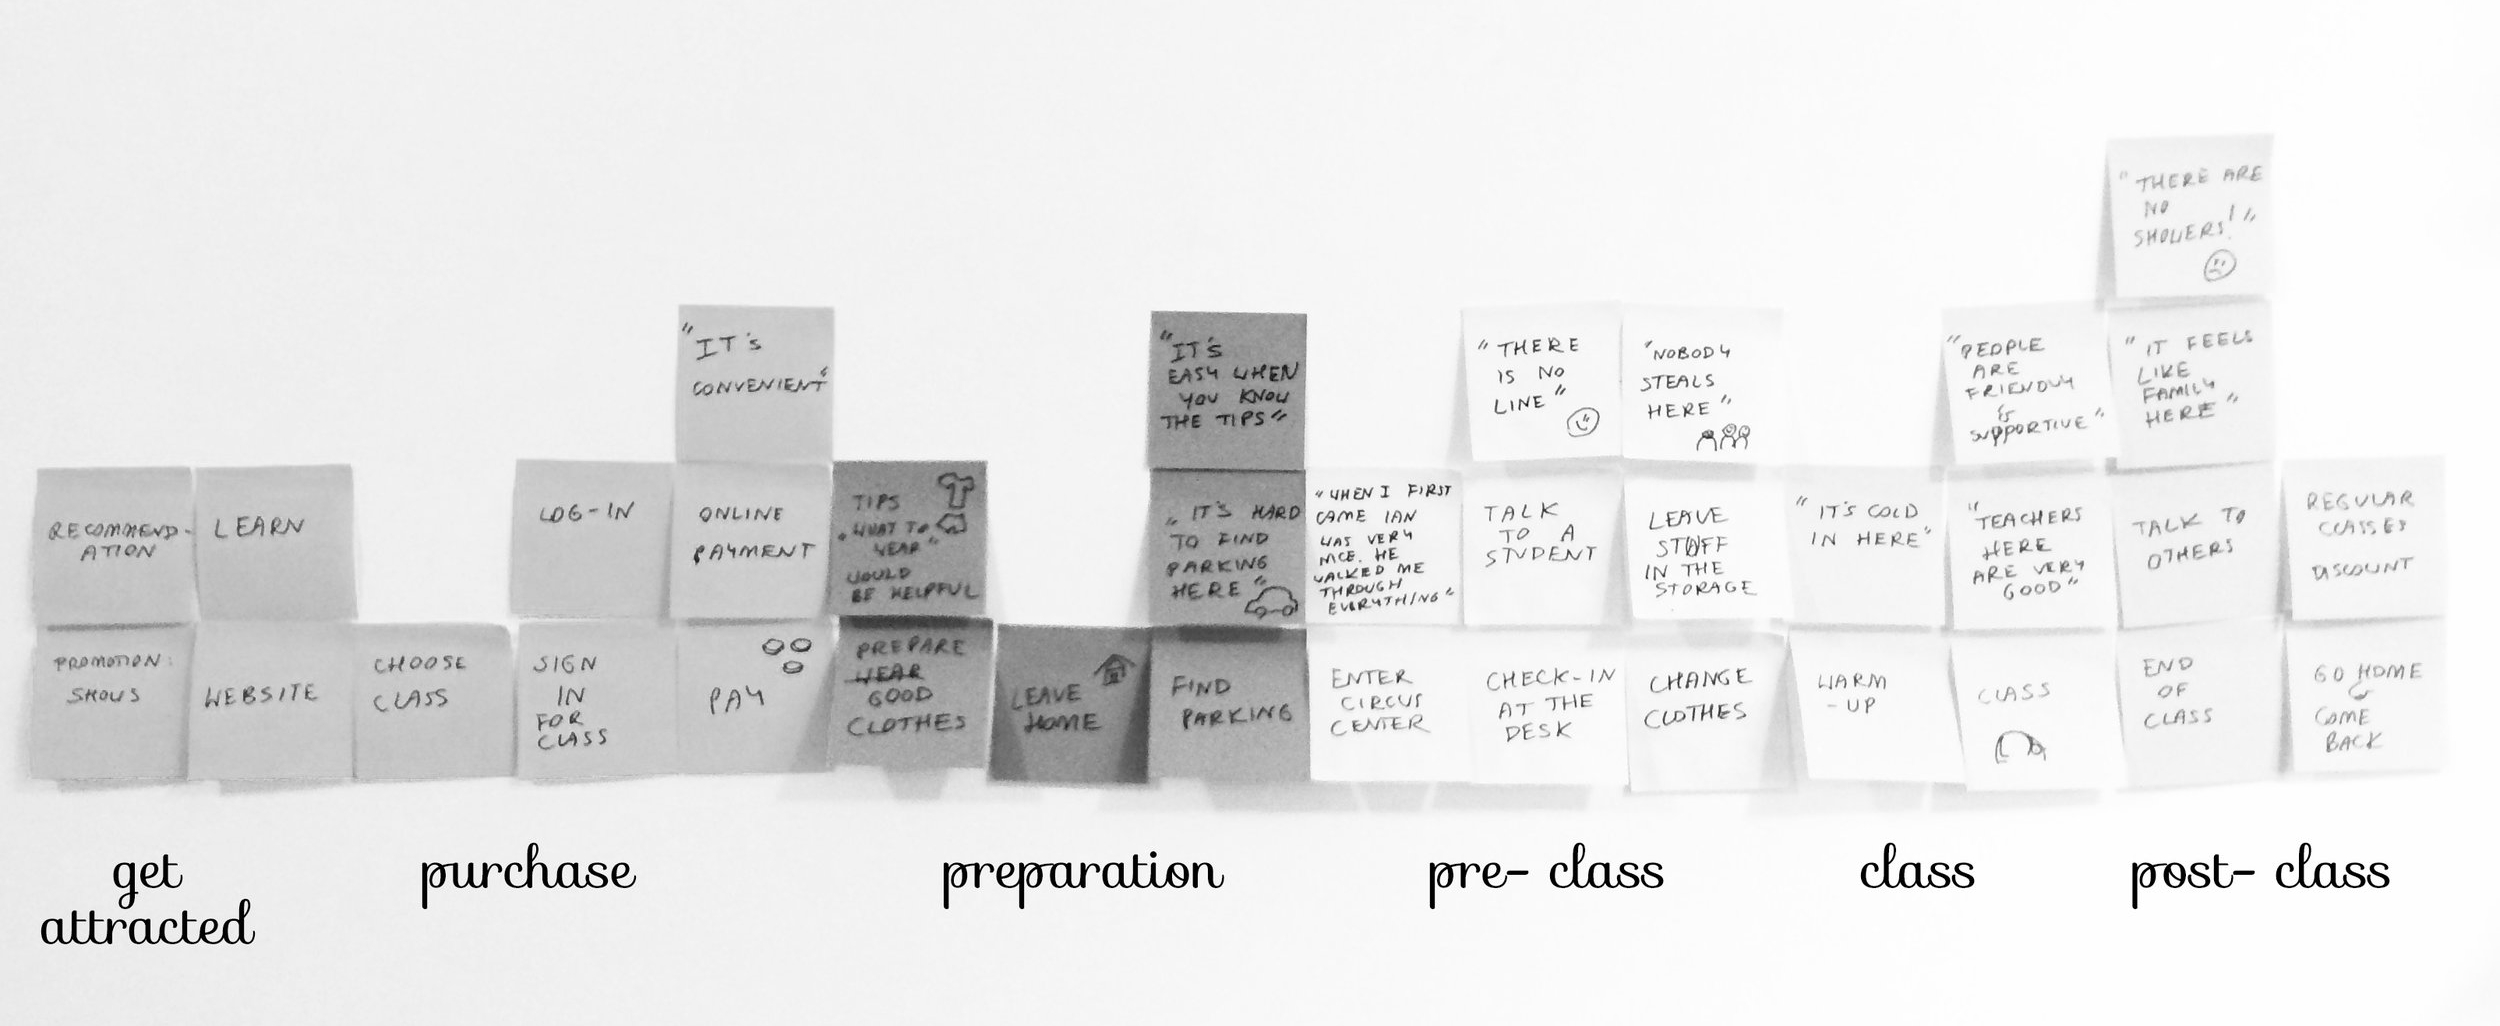 "THERE ARE
NO
SHOWERS!"
"IT's
CONVENIENT"
"IT's
EASY WHEN
YOU KNOW
THE TIPS"
"THERE
IS NO
LINE"
"NOBODY
STEALS
HERE"
"PEOPLE
ARE
FRIENDLY
&
SUPPORTIVE"
"IT FEELS
LIKE
FAMILY
HERE"
RECOMMEND-
ATION
LEARN
LOG-IN
ONLINE
PAYMENT
TIPS
"WHAT TO
WEAR"
WOULD
BE HELPFUL
"IT'S HARD
TO FIND
PARKING
HERE"
"WHEN I FIRST
CAME IAN
WAS VERY
NICE. HE
WALKED ME
THROUGH
EVERYTHING"
TALK
TO A
STUDENT
LEAVE
STUFF
IN THE
STORAGE
"IT'S COLD
IN HERE"
"TEACHERS
HERE
ARE VERY
GOOD"
TALK TO
OTHERS
REGULAR
CLASSES
DISCOUNT
PROMOTION:
SHOWS
WEBSITE
CHOOSE
CLASS
SIGN
IN
FOR
CLASS
PAY
PREPARE
WEAR
GOOD
CLOTHES
LEAVE
HOME
FIND
PARKING
ENTER
CIRCUS
CENTER
CHECK-IN
AT THE
DESK
CHANGE
CLOTHES
WARM
-UP
CLASS
END
OF
CLASS
GO HOME
&
COME
BACK
get
attracted
purchase
preparation
pre- class
class
post- class